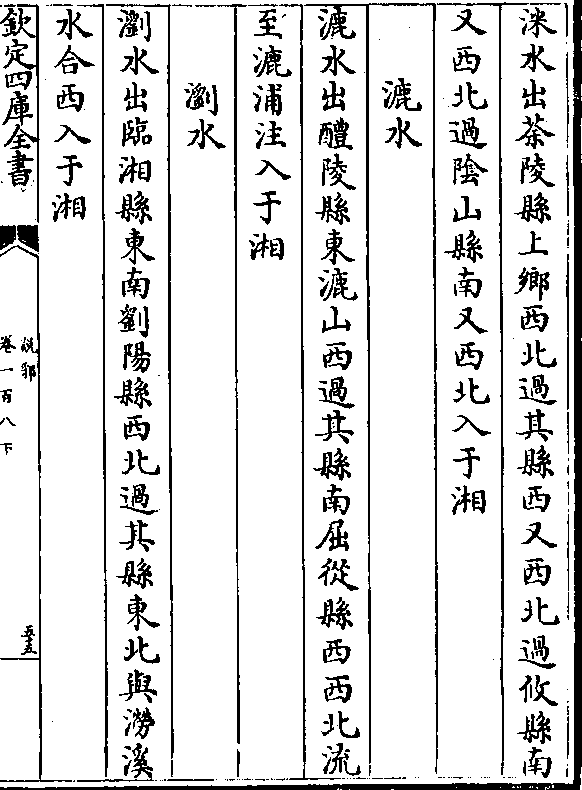 洣水出茶陵縣上鄉西北過其縣西又西北過攸縣南
又西北過陰山縣南又西北入于湘
漉水
漉水出醴陵縣東漉山西過其縣南屈從縣西西北流
至漉浦注入于湘
瀏水
瀏水出臨湘縣東南劉陽縣西北過其縣東北與澇溪
水合西入于湘
欽定四庫全書
說郛
卷一百八下
五五